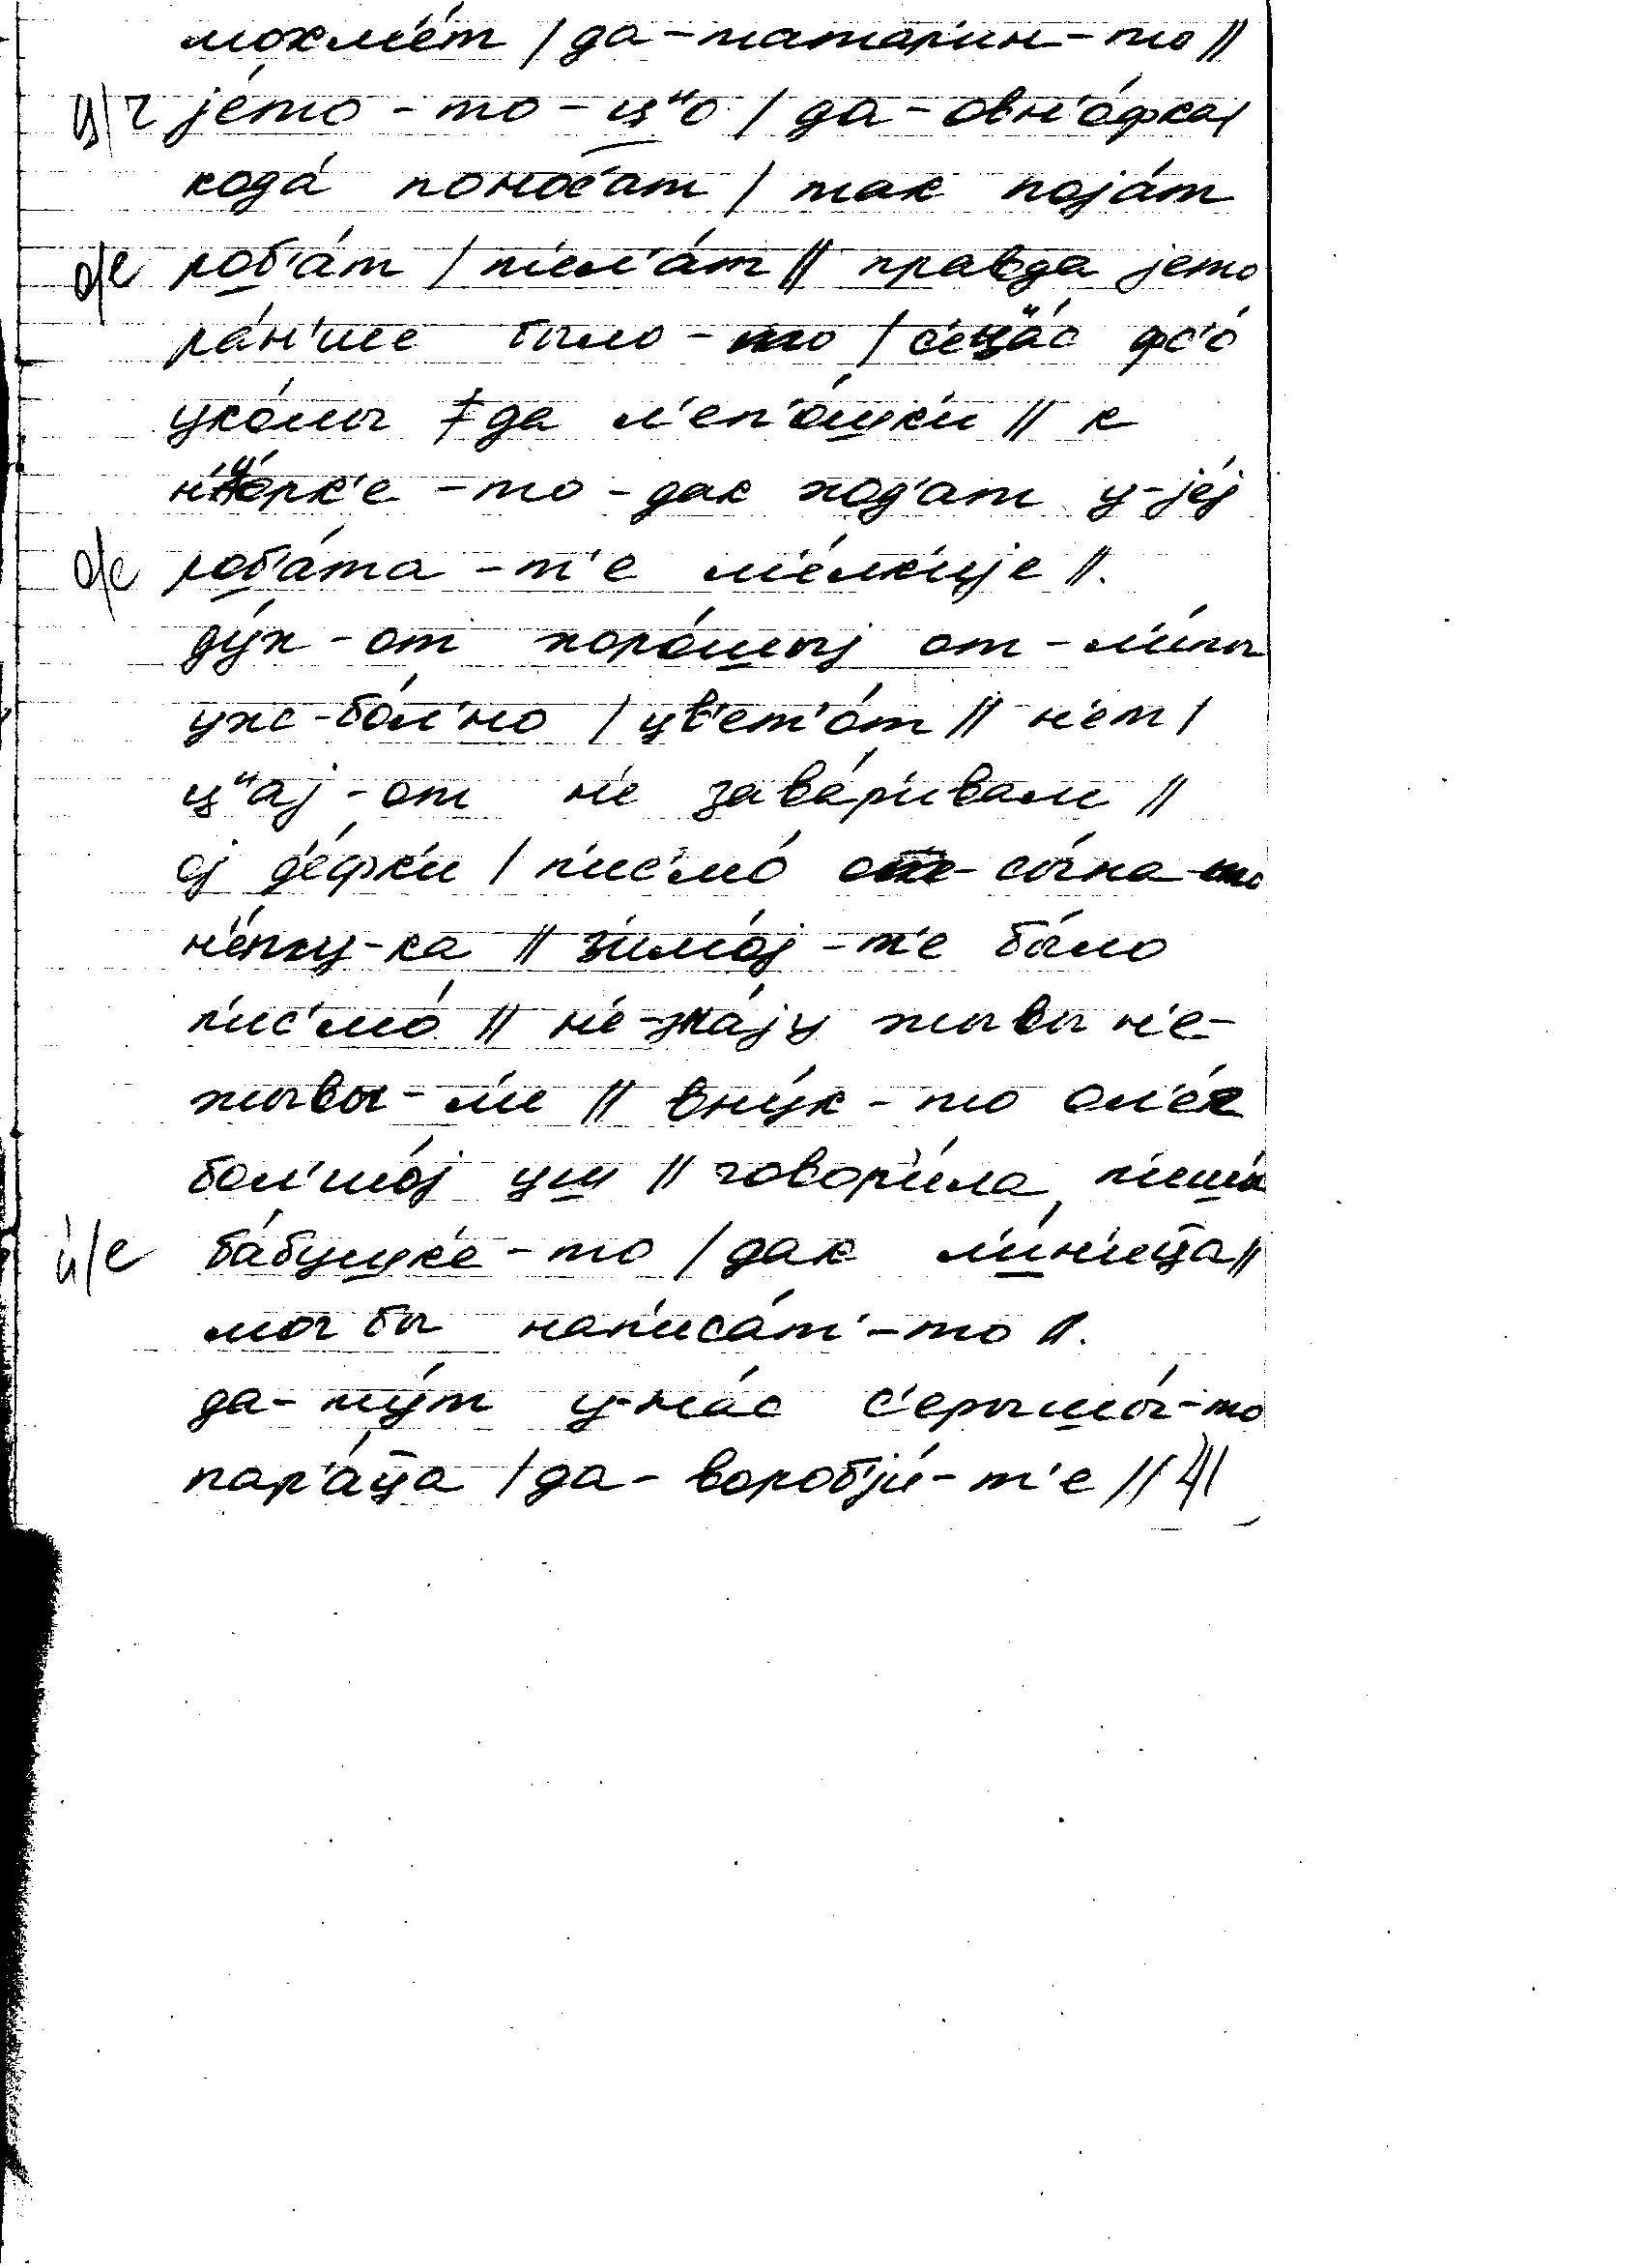 мохм'е́т / да-татар'ин-то //
ц/ч је́то-то-цᶣо / да-овн'а́фка/
када́ понос'ат / так појáт
о/е роб'а́т / п'ел'а́т // правда јето
ра́н'ше было-то / с'ецᶣа́с фс'о́
уко́лы / да л'еп'о́шк'и // к
н'у́рк'е-то-дак ход'ат у-је́ј
о/е роб'а́та-т'е м'е́лк'ије //.
ду́х-от хоро́шыј от-л'и́пы
уж-бо́л'но / цв'ет'о́т // н'ет /
цᶣај-от н'е зава́р'ивал'и //
ој д'е́фк'и / п'ис'мо́ от-сы́на-то
н'е́ту-ка // з'имо́ј-т'е бы́ло
п'ис'мо́ // н'е-зна́ју жывы н'е-
жывы-л'и // вну́к-то ол'е́к
бол'шо́ј уш // говор'и́ла п'ишы́
и́/е ба́бушк'е-то / дак л'и́н'ица //
мог бы нап'иса́т'-то //.
да-ту́т у-на́с с'ерышы́-то
пар'а́ца / да-вороб'јы́-т'е // 4/